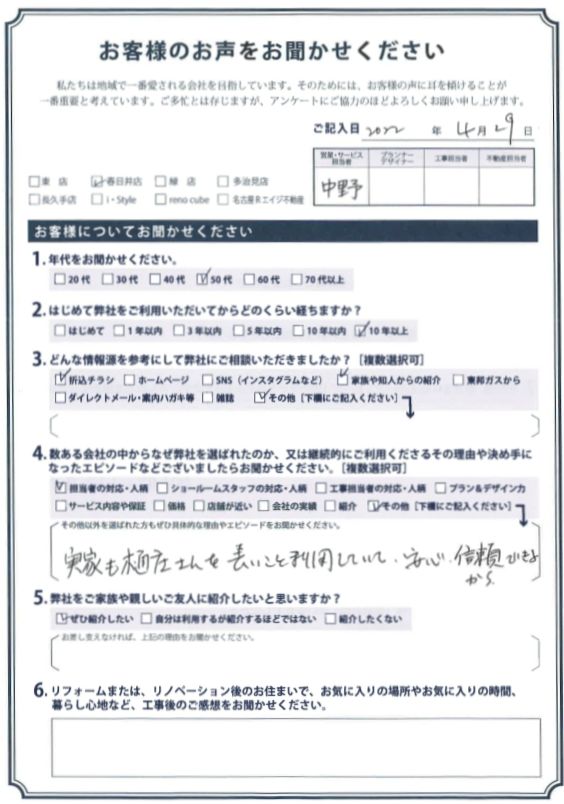 お客様のお声をお聞かせください
私たちは地域で一番愛される会社を目指しています。そのためには、お客様の声に耳を傾けることが
一番重要と考えています。ご多忙とは存じますが、アンケートにご協力のほどよろしくお願い申し上げます。
ご記入日 2022 年 4月 29 日
営業・サービス担当者 プランナーデザイナー 工事担当者 不動産担当者
中野
□東 店 ☑春日井店 □緑 店 □多治見店
□長久手店 □i・Style □reno cube □名古屋Rエイジ不動産
お客様についてお聞かせください
1. 年代をお聞かせください。
□20代 □30代 □40代 ☑50代 □60代 □70代以上
2. はじめて弊社をご利用いただいてからどのくらい経ちますか？
□はじめて □1年以内 □3年以内 □5年以内 □10年以内 ☑10年以上
3. どんな情報源を参考にして弊社にご相談いただきましたか？［複数選択可］
☑折込チラシ □ホームページ □SNS（インスタグラムなど） ☑家族や知人からの紹介 □東邦ガスから
□ダイレクトメール・案内ハガキ等 □雑誌 ☑その他［下欄にご記入ください］
4. 数ある会社の中からなぜ弊社を選ばれたのか、又は継続的にご利用くださるその理由や決め手に
なったエピソードなどございましたらお聞かせください。［複数選択可］
☑担当者の対応・人柄 □ショールームスタッフの対応・人柄 □工事担当者の対応・人柄 □プラン&デザイン力
□サービス内容や保証 □価格 □店舗が近い □会社の実績 □紹介 ☑その他［下欄にご記入ください］
その他以外を選ばれた方もぜひ具体的な理由やエピソードをお聞かせください。
実家も さんを長いこと利用していて、安心、信頼できる
から
5. 弊社をご家族や親しいご友人に紹介したいと思いますか？
☑ぜひ紹介したい □自分は利用するが紹介するほどではない □紹介したくない
お差し支えなければ、上記の理由をお聞かせください。
6. リフォームまたは、リノベーション後のお住まいで、お気に入りの場所やお気に入りの時間、
暮らし心地など、工事後のご感想をお聞かせください。